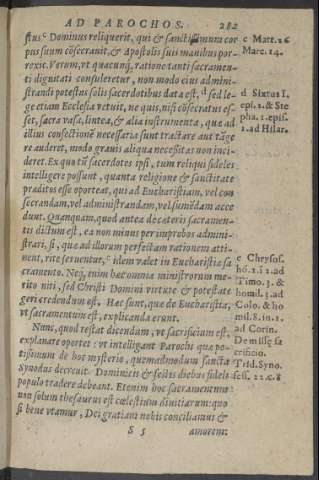 AD PAROCHOS. 282
stus c Dominus reliquerit, qui & sanctissimum cor
pus suum cōsecravit, & Apostolis suis manibus por-
rexit. Verum, vt quacunq; ratione tanti sacramen-
ti dignitati consuleretur, non modo eius admini-
strandi potestas solis sacerdotibus data est, d sed le-
ge etiam Ecclesia vetuit, ne quis, nisi cōsecratus es-
set, sacra vasa, lintea, & alia instrumenta, quæ ad
illius confectionē necessaria sunt tractare aut tāge
re auderet, modo gravis aliqua necessitas non inci-
deret. Ex quo tū sacerdotes ipsi, tum reliqui fideles
intelligere possunt, quanta religione & sanctitate
præditos esse oporteat, qui ad Eucharistiam, vel con
secrandam, vel administrandam, vel sumēdam acce
dunt. Quamquam, quod antea de cæteris sacramen-
tis dictum est, ea non minus per improbos admini-
strari, si, quæ ad illorum perfectam rationem atti-
nent, rite serventur, e idem valet in Eucharistiæ sa
cramento. Neq; enim hæc omnia ministrorum me-
rito niti, sed Christi Domini virtute & potestate
geri credendum est. Hæc sunt, quæ de Eucharistia,
vt sacramentum est, explicanda erunt.
Nunc, quod restat dicendum, vt sacrificium est,
explanare oportet: vt intelligant Parochi quæ po-
tissimum de hoc mysterio, quemadmodum sancta
Synodus decrevit Dominicis & festis diebus fideli
populo tradere debeant. Etenim hoc sacramentum
non solum thesaurus est cœlestium divitiarum: quo
si bene vtamur, Dei gratiam nobis conciliamus &
S 5 amorem:
c Matt. 26
Marc. 14.
d Sixtus I.
epi. 2. & Ste
pha. 1. epis.
1. ad Hilar.
e Chrysos.
hō. 2. i 2. ad
Timo. 3. &
homil. 3. ad
Colo. & ho
mil. 8. in 1.
ad Corin.
De missæ sa
crificio.
Trid. Syno.
sess. 22. c. 8